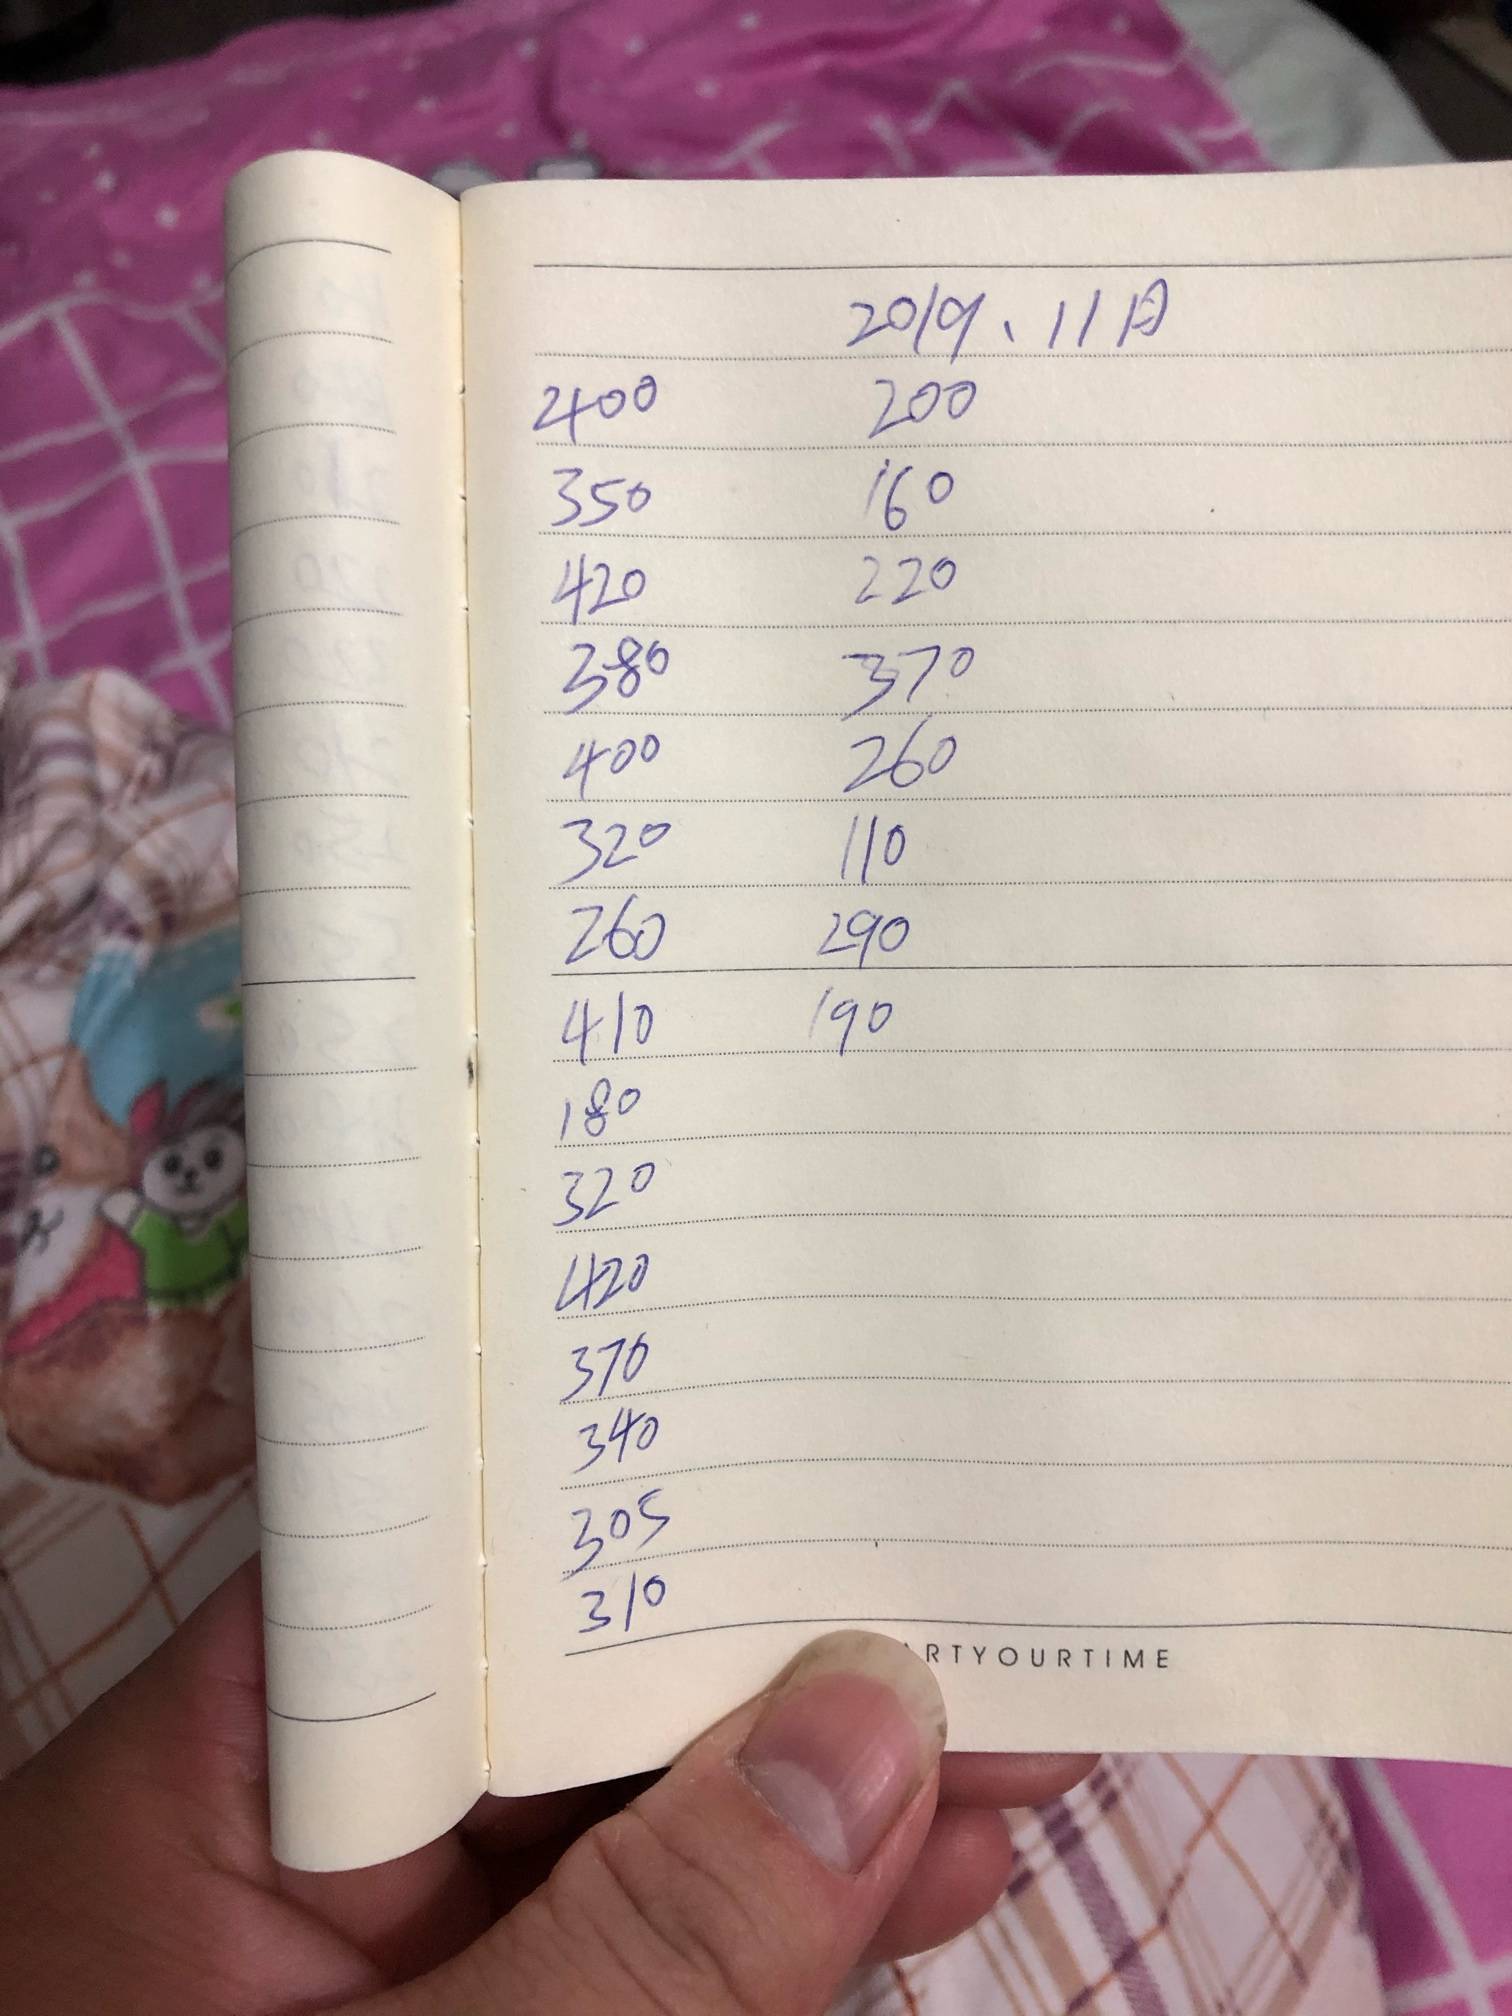 2019、11月
400 200
350 160
420 220
380 370
400 260
320 110
260 290
410 190
180
320
420
370
340
305
310
RTYOURTIME